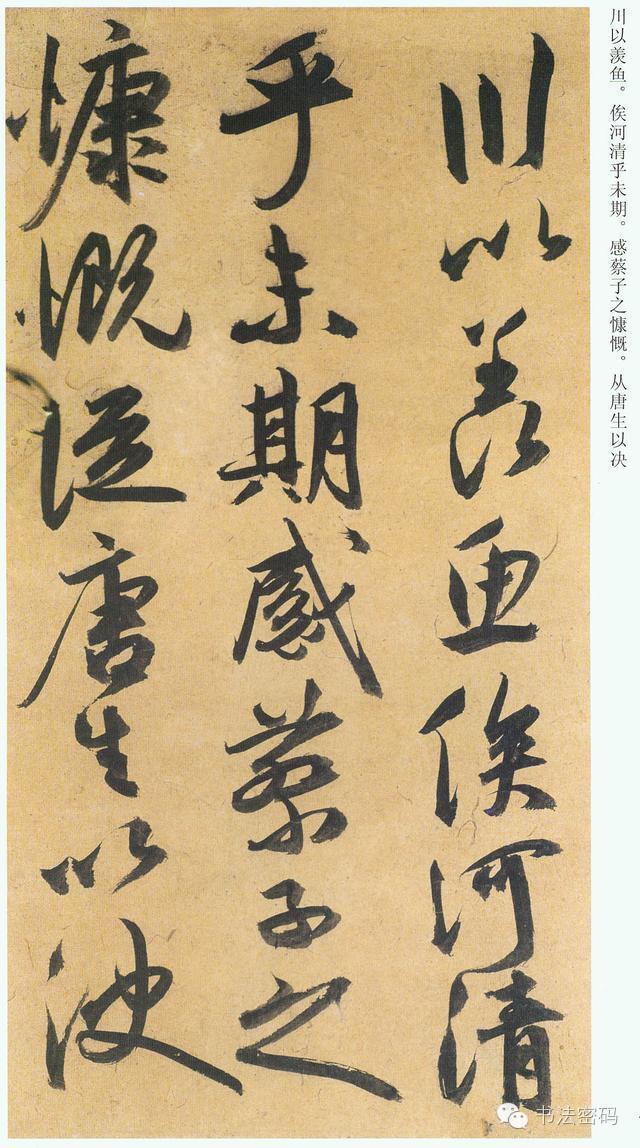 川以羡鱼。俟河清乎未期。感蔡子之慷慨。从唐生以决
川以羨魚俟河清
乎未期感蔡子之
慷慨從唐生以決
书法密码